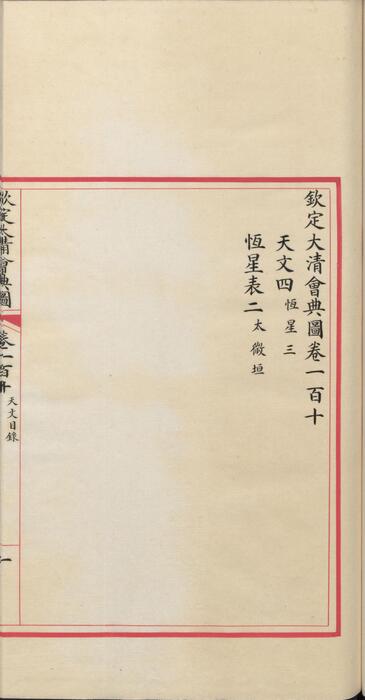 欽定大清會典圖卷一百十
天文四恆星三
恆星表二太微垣
欽定大清會典圖
卷一百十
天文目錄
一